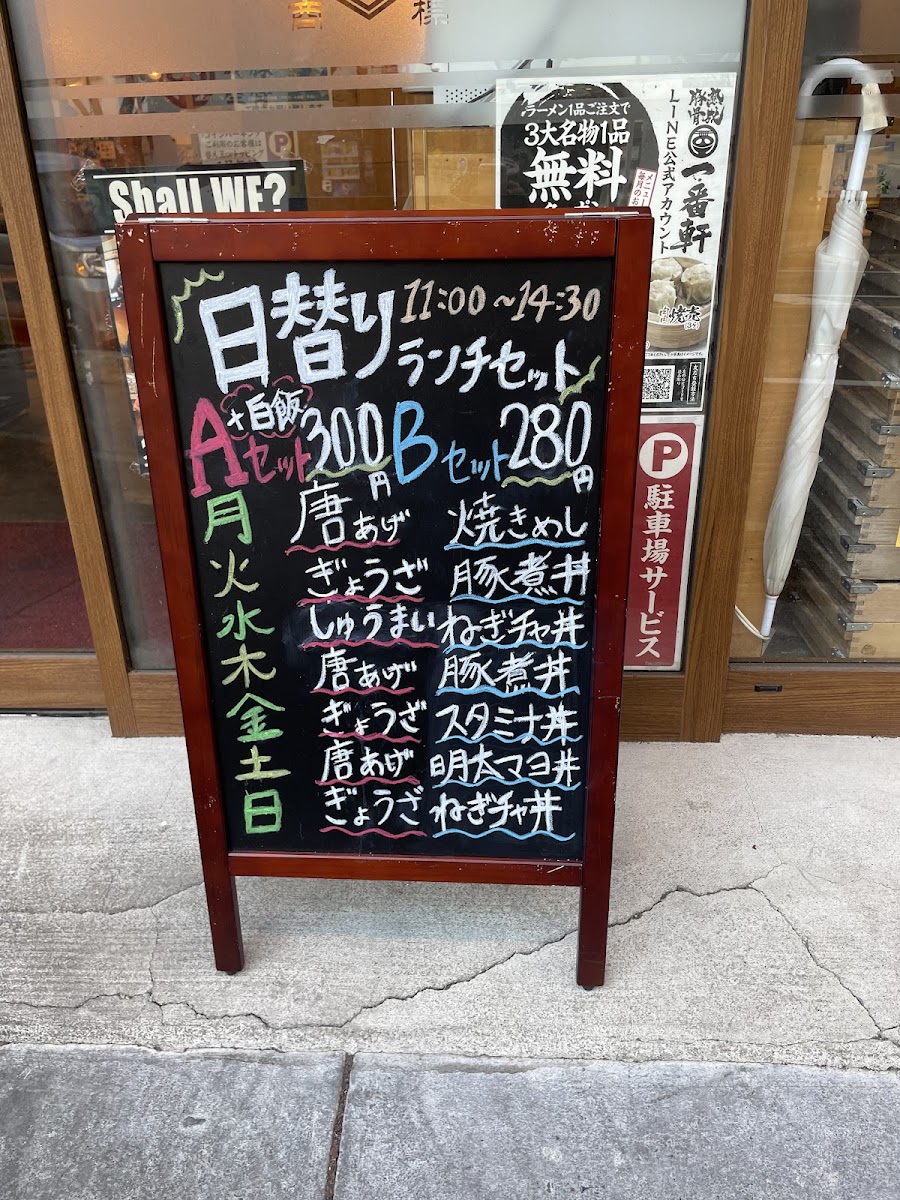 香 標
Shall WE?
ラーメン1品ご注文で
3大名物1品
無料
LINE公式アカウント
一番軒
焼売
P
駐車場サービス
日替り 11:00～14:30
ランチセット
Aセット +白飯 300円 Bセット 280円
月 唐あげ 焼きめし
火 ぎょうざ 豚煮丼
水 しゅうまい ねぎチャ丼
木 唐あげ 豚煮丼
金 ぎょうざ スタミナ丼
土 唐あげ 明太マヨ丼
日 ぎょうざ ねぎチャ丼